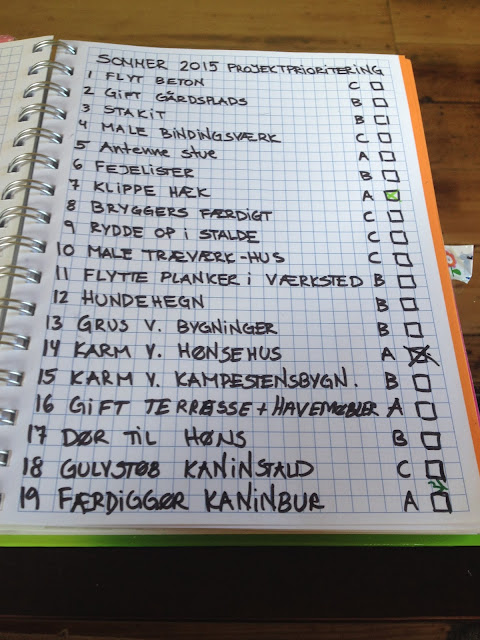 SOMMER 2015 PROJEKTPRIORITERING
1 FLYT BETON C
2 GIFT GÅRDSPLADS B
3 STAKIT B
4 MALE BINDINGSVÆRK C
5 Antenne stue A
6 FEJELISTER B
7 KLIPPE HÆK A
8 BRYGGERS FÆRDIGT C
9 RYDDE OP i STALDE C
10 MALE TRÆVÆRK-HUS C
11 FLYTTE PLANKER i VÆRKSTED B
12 HUNDEHEGN B
13 GRUS V. BYGNINGER B
14 KARM V. HØNSEHUS A
15 KARM V. KAMPESTENSBYGN. B
16 GIFT TERRASSE + HAVEMØBLER A
17 DØR TIL HØNS B
18 GULVSTØB KANINSTALD C
19 FÆRDIGGØR KANINBUR A